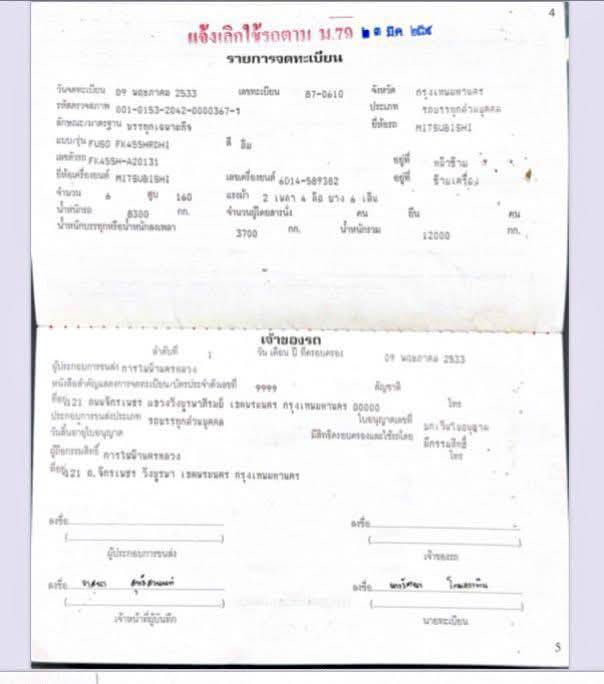 4
แจ้งเลิกใช้รถตาม ม.79
รายการจดทะเบียน
วันจดทะเบียน 09 พฤษภาคม 2533 เลขทะเบียน 87-0610 จังหวัด กรุงเทพมหานคร
รหัสตรวจสภาพ 001-0153-2042-0000367-1 ประเภท รถบรรทุกส่วนบุคคล
ลักษณะ/มาตรฐาน บรรทุกเฉพาะกิจ ยี่ห้อรถ MITSUBISHI
แบบ/รุ่น FUSO FK455HRDH1 สี ส้ม
เลขตัวรถ FK455H-A20131 อยู่ที่ หน้าซ้าย
ยี่ห้อเครื่องยนต์ MITSUBISHI เลขเครื่องยนต์ 6D14-589382 อยู่ที่ ซ้ายเครื่อง
จำนวน 6 สูบ 160 แรงม้า 2 เพลา 4 ล้อ ยาง 6 เส้น
น้ำหนักรถ 8300 กก. จำนวนผู้โดยสารนั่ง คน ยืน คน
น้ำหนักบรรทุกหรือน้ำหนักลงเพลา 3700 กก. น้ำหนักรวม 12000 กก.
เจ้าของรถ
ลำดับที่ 1 วัน เดือน ปี ที่ครอบครอง 09 พฤษภาคม 2533
ผู้ประกอบการขนส่ง การไฟฟ้านครหลวง
หนังสือสำคัญแสดงการจดทะเบียน/บัตรประจำตัวเลขที่ 9999 สัญชาติ
ที่อยู่ 121 ถนนจักรเพชร แขวงวังบูรพาภิรมย์ เขตพระนคร กรุงเทพมหานคร 00000 โทร
ประกอบการขนส่งประเภท รถบรรทุกส่วนบุคคล ใบอนุญาตเลขที่
วันสิ้นอายุใบอนุญาต มีสิทธิครอบครองและใช้รถโดย มีกรรมสิทธิ์
ผู้ถือกรรมสิทธิ์ การไฟฟ้านครหลวง โทร
ที่อยู่ 121 ถ.จักรเพชร วังบูรพา เขตพระนคร กรุงเทพมหานคร
ลงชื่อ ลงชื่อ
( ) ( )
ผู้ประกอบการขนส่ง เจ้าของรถ
ลงชื่อ ลงชื่อ
( ) ( )
เจ้าหน้าที่ผู้บันทึก นายทะเบียน
5